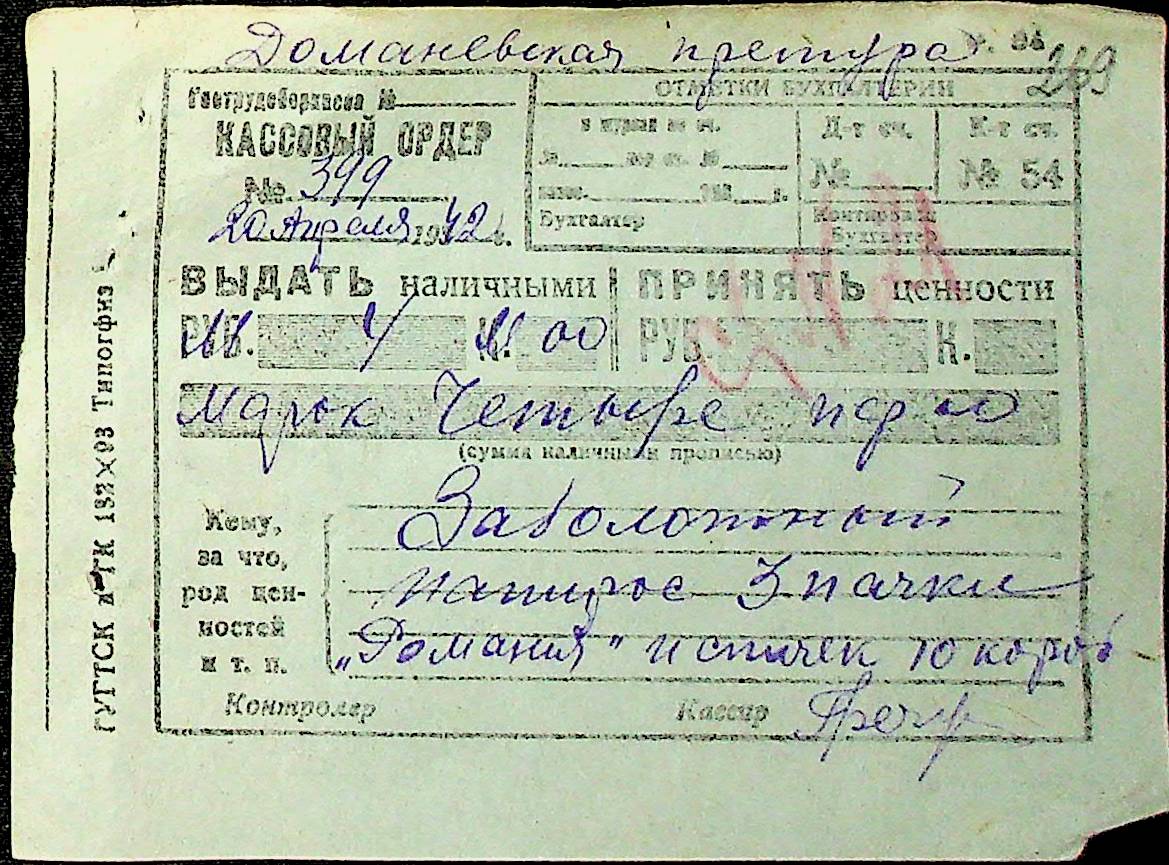 Доманевская претура
269
Гострудсберкасса №
КАССОВЫЙ ОРДЕР
№ 399
20 Апреля 1942 г.
ОТМЕТКИ БУХГАЛТЕРИИ
Бухгалтер
Д-т сч.
№
К-т сч.
№ 54
Контировал
Бухгалтер
ВЫДАТЬ наличными
РУБ. 4 К. 00
ПРИНЯТЬ ценности
РУБ. К.
марок Четыре пф 00
(сумма наличными прописью)
Кому,
за что,
род цен-
ностей
и т. п.
Заболотный
папирос 3 пачки
„Романия" и спичек 10 короб
Контролер
Кассир
ГУГТСК и ГК Типогфиз